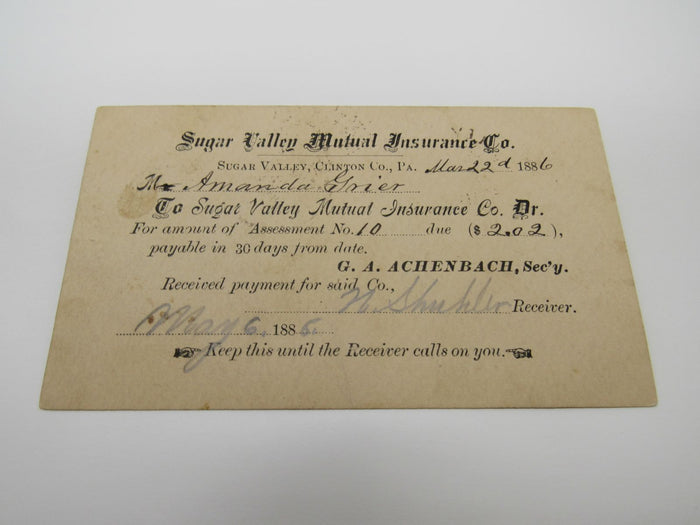 Sugar Valley Mutual Insurance Co.
Sugar Valley, Clinton Co., Pa. Mar 22d 1886
Mr Amanda Grier
To Sugar Valley Mutual Insurance Co. Dr.
For amount of Assessment No. 10 due ($ 2.02),
payable in 30 days from date.
G. A. ACHENBACH, Sec'y.
Received payment for said Co.,
Receiver.
May 6, 188
Keep this until the Receiver calls on you.